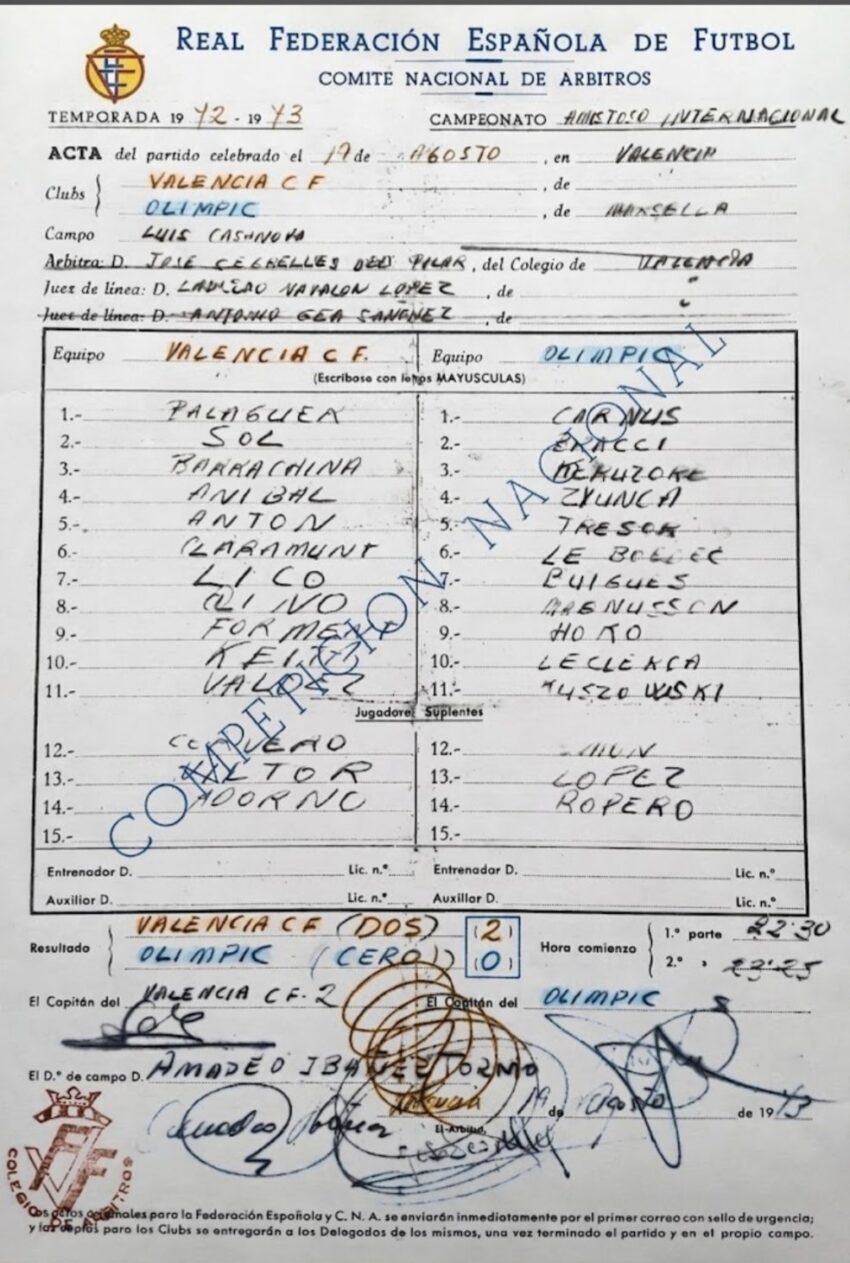 REAL FEDERACIÓN ESPAÑOLA DE FUTBOL
COMITE NACIONAL DE ARBITROS
TEMPORADA 1972 - 1973 CAMPEONATO AMISTOSO INTERNACIONAL
ACTA del partido celebrado el 19 de AGOSTO, en VALENCIA
Clubs VALENCIA C F, de
OLIMPIC, de MARSELLA
Campo LUIS CASANOVA
Arbitro: D. JOSE CECRELLES DEL PILAR, del Colegio de VALENCIA
Juez de línea: D. LADISLAO NAVALON LOPEZ, de "
Juez de línea: D. ANTONIO GEA SANCHEZ, de
Equipo VALENCIA C F. Equipo OLIMPIC
(Escríbase con letras MAYUSCULAS)
1.- PALAGUER 1.- CARNUS
2.- SOL 2.- BRACCI
3.- BARRACHINA 3.-
4.- ANIBAL 4.- ZVUNCA
5.- ANTON 5.- TRESOR
6.- CLARAMUNT 6.- LE BOEDEC
7.- LICO 7.- BUIGUES
8.- QUINO 8.- MAGNUSSON
9.- FORMENT 9.-
10.- KEITA 10.- LECLERCA
11.- VALDEZ 11.- KUSZOWSKI
Jugadores Suplentes
12.- CERVERO 12.-
13.- HECTOR 13.- LOPEZ
14.- ADORNO 14.- ROPERO
15.- 15.-
Entrenador D. Lic. n.º Entrenador D. Lic. n.º
Auxiliar D. Lic. n.º Auxiliar D. Lic. n.º
COMPETICION NACIONAL
Resultado VALENCIA C F (DOS) (2) Hora comienzo 1.ª parte 22'30
OLIMPIC (CERO) (0) 2.ª » 23'25
El Capitán del VALENCIA CF-2 El Capitán del OLIMPIC
El D.º de campo D. AMADEO IBAÑEZ TORMO
Valencia 19 de Agosto de 1973
El Arbitro,
COLEGIO DE ARBITROS
Los actas originales para la Federación Española y C. N. A. se enviarán inmediatamente por el primer correo con sello de urgencia;
y las copias para los Clubs se entregarán a los Delegados de los mismos, una vez terminado el partido y en el propio campo.